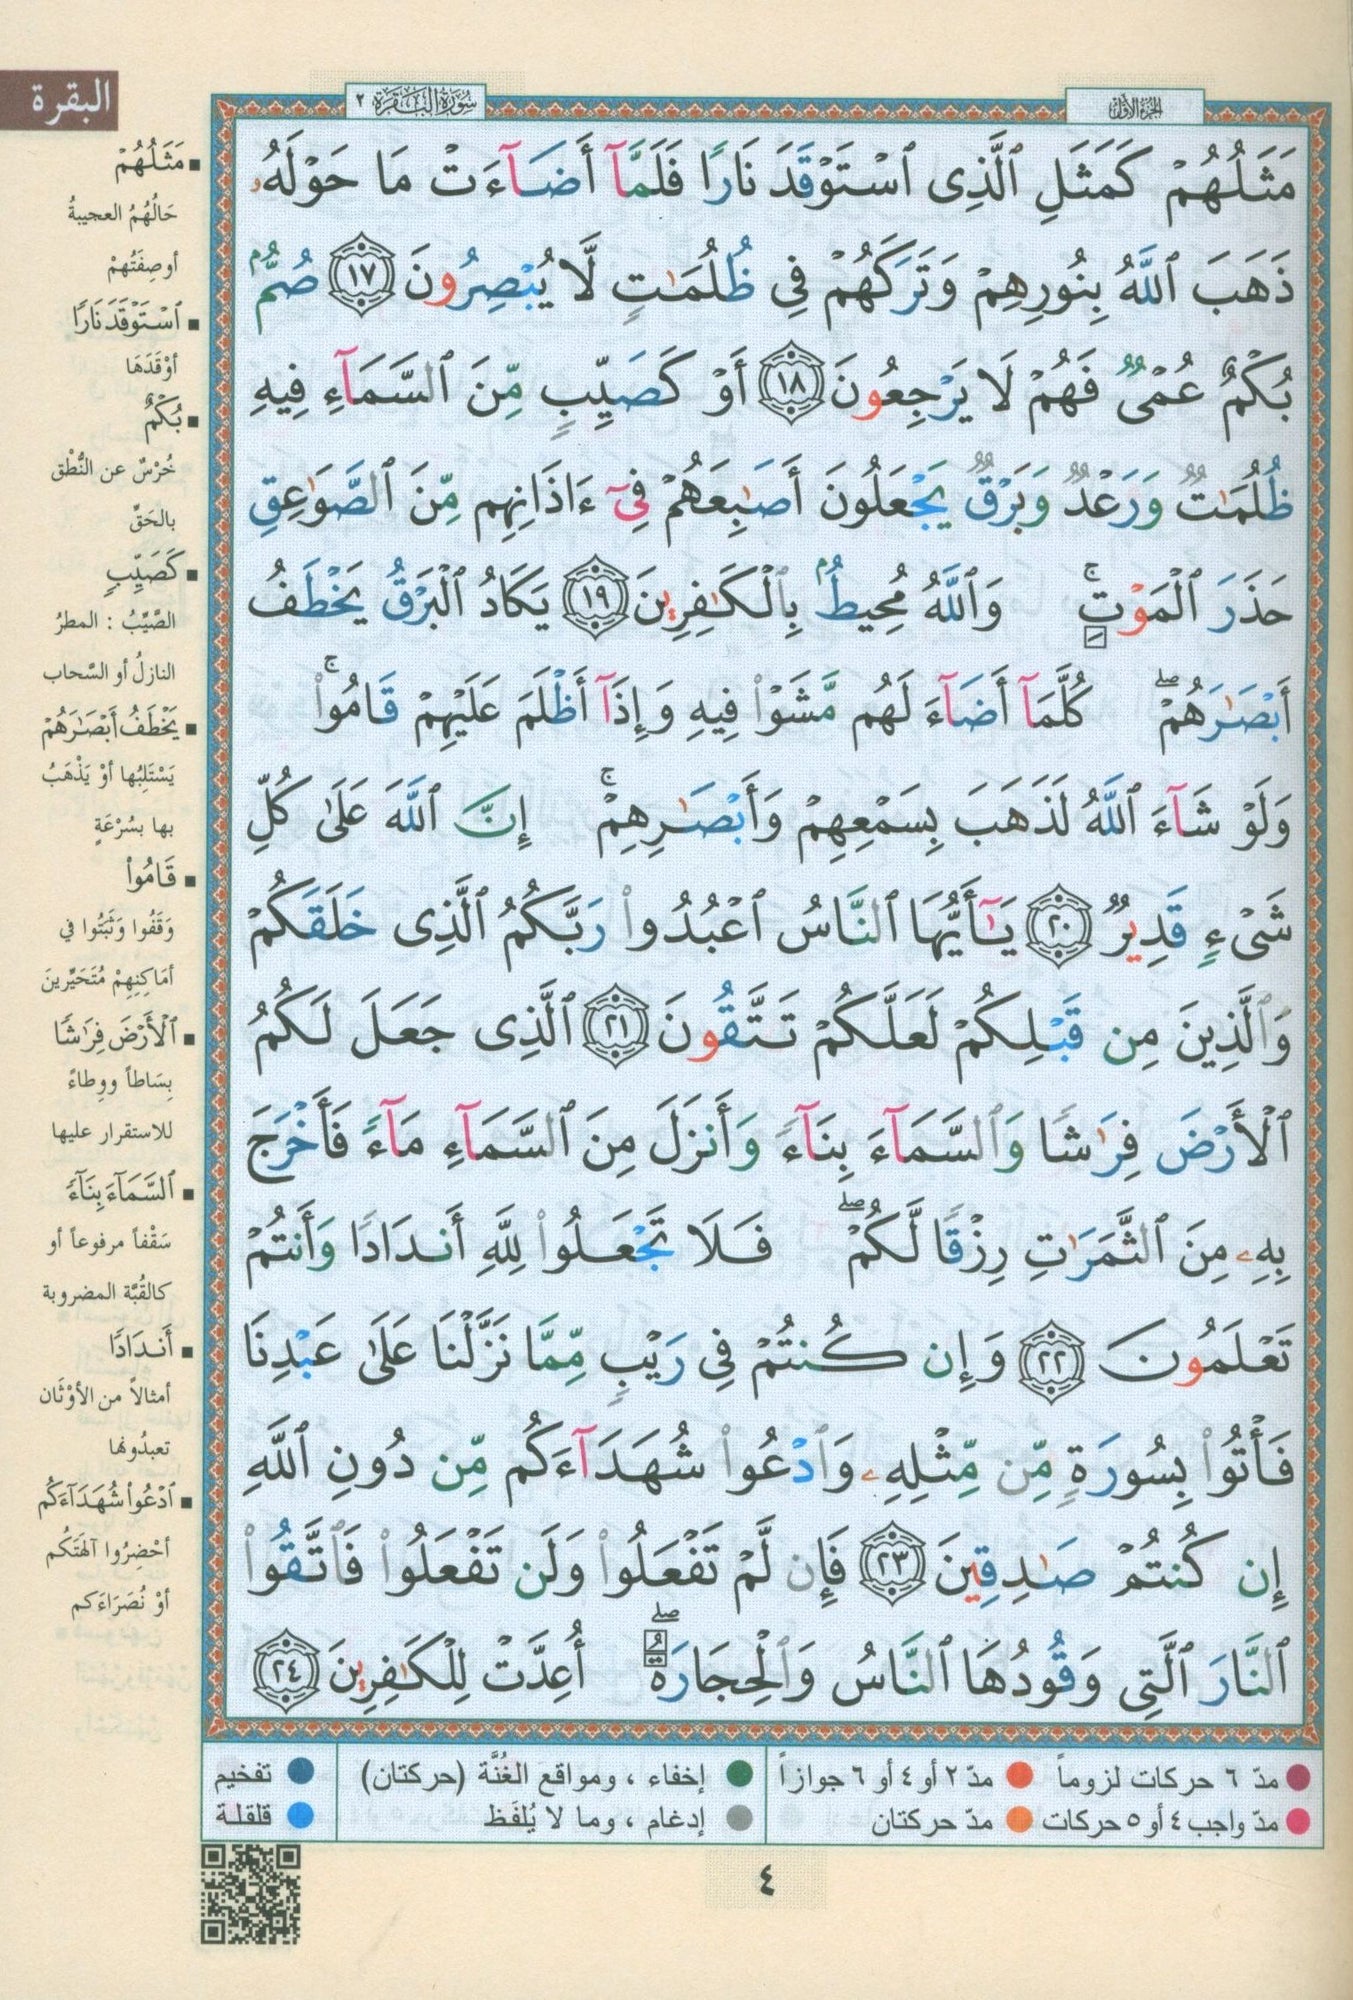 البقرة
سُورَةُ البَقَرَة ٢
الجزء الأول
مَثَلُهُمْ كَمَثَلِ ٱلَّذِى ٱسْتَوْقَدَ نَارًا فَلَمَّآ أَضَآءَتْ مَا حَوْلَهُۥ
ذَهَبَ ٱللَّهُ بِنُورِهِمْ وَتَرَكَهُمْ فِى ظُلُمَـٰتٍ لَّا يُبْصِرُونَ ١٧ صُمٌّۢ
بُكْمٌ عُمْىٌ فَهُمْ لَا يَرْجِعُونَ ١٨ أَوْ كَصَيِّبٍ مِّنَ ٱلسَّمَآءِ فِيهِ
ظُلُمَـٰتٌ وَرَعْدٌ وَبَرْقٌ يَجْعَلُونَ أَصَـٰبِعَهُمْ فِىٓ ءَاذَانِهِم مِّنَ ٱلصَّوَٰعِقِ
حَذَرَ ٱلْمَوْتِ ۚ وَٱللَّهُ مُحِيطٌۢ بِٱلْكَـٰفِرِينَ ١٩ يَكَادُ ٱلْبَرْقُ يَخْطَفُ
أَبْصَـٰرَهُمْ ۖ كُلَّمَآ أَضَآءَ لَهُم مَّشَوْا۟ فِيهِ وَإِذَآ أَظْلَمَ عَلَيْهِمْ قَامُوا۟ ۚ
وَلَوْ شَآءَ ٱللَّهُ لَذَهَبَ بِسَمْعِهِمْ وَأَبْصَـٰرِهِمْ ۚ إِنَّ ٱللَّهَ عَلَىٰ كُلِّ
شَىْءٍ قَدِيرٌ ٢٠ يَـٰٓأَيُّهَا ٱلنَّاسُ ٱعْبُدُوا۟ رَبَّكُمُ ٱلَّذِى خَلَقَكُمْ
وَٱلَّذِينَ مِن قَبْلِكُمْ لَعَلَّكُمْ تَتَّقُونَ ٢١ ٱلَّذِى جَعَلَ لَكُمُ
ٱلْأَرْضَ فِرَٰشًا وَٱلسَّمَآءَ بِنَآءً وَأَنزَلَ مِنَ ٱلسَّمَآءِ مَآءً فَأَخْرَجَ
بِهِۦ مِنَ ٱلثَّمَرَٰتِ رِزْقًا لَّكُمْ ۖ فَلَا تَجْعَلُوا۟ لِلَّهِ أَندَادًا وَأَنتُمْ
تَعْلَمُونَ ٢٢ وَإِن كُنتُمْ فِى رَيْبٍ مِّمَّا نَزَّلْنَا عَلَىٰ عَبْدِنَا
فَأْتُوا۟ بِسُورَةٍ مِّن مِّثْلِهِۦ وَٱدْعُوا۟ شُهَدَآءَكُم مِّن دُونِ ٱللَّهِ
إِن كُنتُمْ صَـٰدِقِينَ ٢٣ فَإِن لَّمْ تَفْعَلُوا۟ وَلَن تَفْعَلُوا۟ فَٱتَّقُوا۟
ٱلنَّارَ ٱلَّتِى وَقُودُهَا ٱلنَّاسُ وَٱلْحِجَارَةُ ۖ أُعِدَّتْ لِلْكَـٰفِرِينَ ٢٤
مَثَلُهُمْ
حَالُهُمُ العجيبةُ
أو صِفَتُهمْ
ٱسْتَوْقَدَ نَارًا
أوْقَدَهَا
بُكْمٌ
خُرْسٌ عن النُّطْق
بالحَقّ
كَصَيِّبٍ
الصَّيِّبُ : المطرُ
النازلُ أو السَّحاب
يَخْطَفُ أَبْصَـٰرَهُمْ
يَسْتَلِبُها أوْ يَذْهَبُ
بها بسُرْعَةٍ
قَامُوا۟
وَقَفُوا وَثَبَتُوا في
أمَاكِنِهِمْ مُتَحَيِّرينَ
ٱلْأَرْضَ فِرَٰشًا
بِسَاطاً ووِطاءً
للاستقرار عليها
ٱلسَّمَآءَ بِنَآءً
سَقْفاً مرفوعاً أو
كالقُبَّة المضروبة
أَندَادًا
أمثالاً من الأوْثَان
تعبدُونها
ٱدْعُوا۟ شُهَدَآءَكُم
أحْضِرُوا آلهَتَكُم
أوْ نُصَرَاءَكم
مدّ ٦ حركات لزوماً مدّ ٢ أو ٤ أو ٦ جوازاً إخفاء ، ومواقع الغُنَّة (حركتان) تفخيم
مدّ واجب ٤ أو ٥ حركات مدّ حركتان إدغام ، وما لا يُلفَظ قلقلة
٤